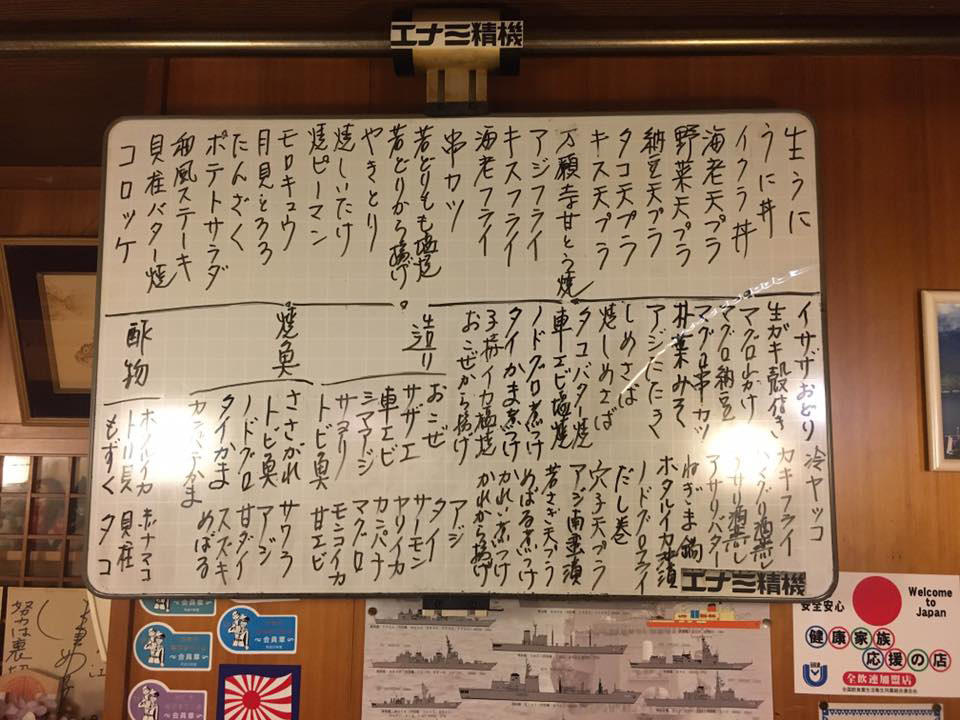 エナミ精機
生うに
うに丼
イクラ丼
海老天プラ
野菜天プラ
納豆天プラ
タコ天プラ
キス天プラ
万願寺甘とう焼
アジフライ
キスフライ
海老フライ
串カツ
若どりもも塩焼
若どりから揚げ
やきとり
焼しいたけ
焼ピーマン
モロキュウ
月見とろろ
たんざく
ポテトサラダ
和風ステーキ
貝柱バター焼
コロッケ
イサザおどり
生ガキ殻付き
マグロ山かけ
マグロ納豆
マグロ串カツ
朴葉みそ
アジたたき
しめさば
焼しめさば
タコバター焼
車エビ塩焼
ノドグロ煮つけ
タイかま煮つけ
子持イカ塩焼
おこぜから揚げ
冷ヤッコ
カキフライ
ハマグリ酒蒸し
アサリ酒蒸し
アサリバター
ねぎま鍋
ホタルイカ沖漬
ノドグロフライ
だし巻
穴子天プラ
アジ南蛮漬
若さぎ天プラ
めばる煮つけ
かれい煮つけ
かれいから揚げ
造り
おこぜ
サザエ
車エビ
シマアジ
サヨリ
トビ魚
アジ
タイ
サーモン
ヤリイカ
カンパチ
マグロ
モンゴイカ
甘エビ
焼魚
ささがれ
トビ魚
ノドグロ
タイかま
カンパチかま
サワラ
アジ
甘ダイ
スズキ
めばる
酢物
ホタルイカ
トリ貝
もずく
赤ナマコ
貝柱
タコ
エナミ精機
安全安心
Welcome
to
Japan
健康家族
応援の店
全飲連加盟店
～会員章～
～会員章～
～会員章～
～会員章